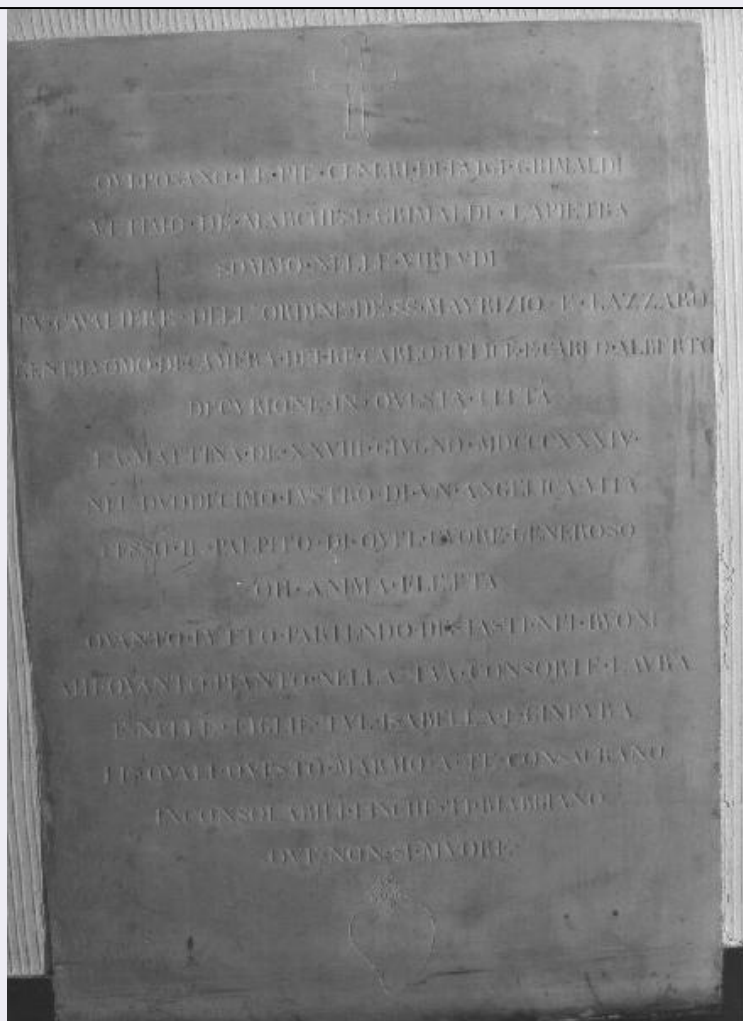 QVI·POSANO·LE·PIE·CENERI·DI·LVIGI·GRIMALDI
VLTIMO·DE·MARCHESI·GRIMALDI·LAPIETRA
SOMMO·NELLE·VIRTVDI
FV·CAVALIERE·DELL'ORDINE·DE·SS·MAVRIZIO·E·LAZZARO
GENTILVOMO·DI·CAMERA·DEI·RE·CARLO·FELICE·E·CARLO·ALBERTO
DECVRIONE·IN·QVESTA·CITTÀ
LA·MATTINA·DE·XXVIII·GIVGNO·MDCCCXXXIV·
NEL·DVODECIMO·LVSTRO·DI·VN·ANGELICA·VITA
CESSÒ·IL·PALPITO·DI·QVEL·CVORE·GENEROSO
OH·ANIMA·ELETTA
QVANTO·LVTTO·PARTENDO·DESTASTI·NEI·BVONI
AHI·QVANTO·PIANTO·NELLA·TVA·CONSORTE·LAVRA
E·NELLE·FIGLIE·TVE·ISABELLA·E·GINEVRA
LE·QVALI·QVESTO·MARMO·A·TE·CONSACRANO
INCONSOLABILI·FINCHÈ·TI·RIABBIANO
OVE·NON·SI·MVORE·